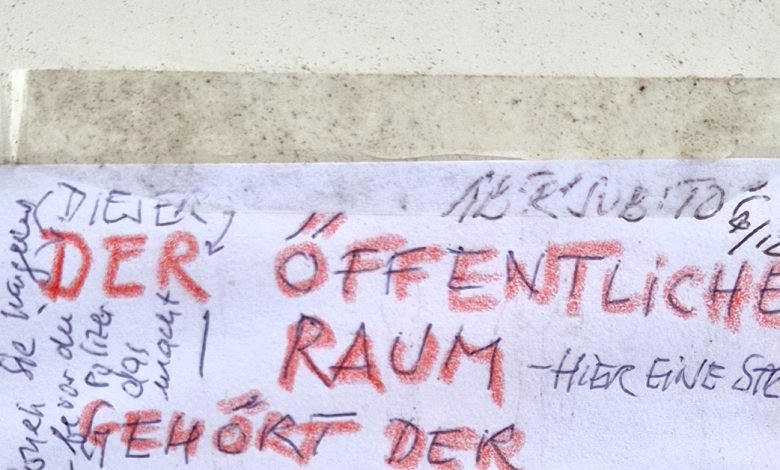 (DIESER
ABER SUBITO
DER ÖFFENTLICHE
RAUM
-HIER EINE STE
GEHÖRT DER
Sie
bevor die
Polizei
das
macht